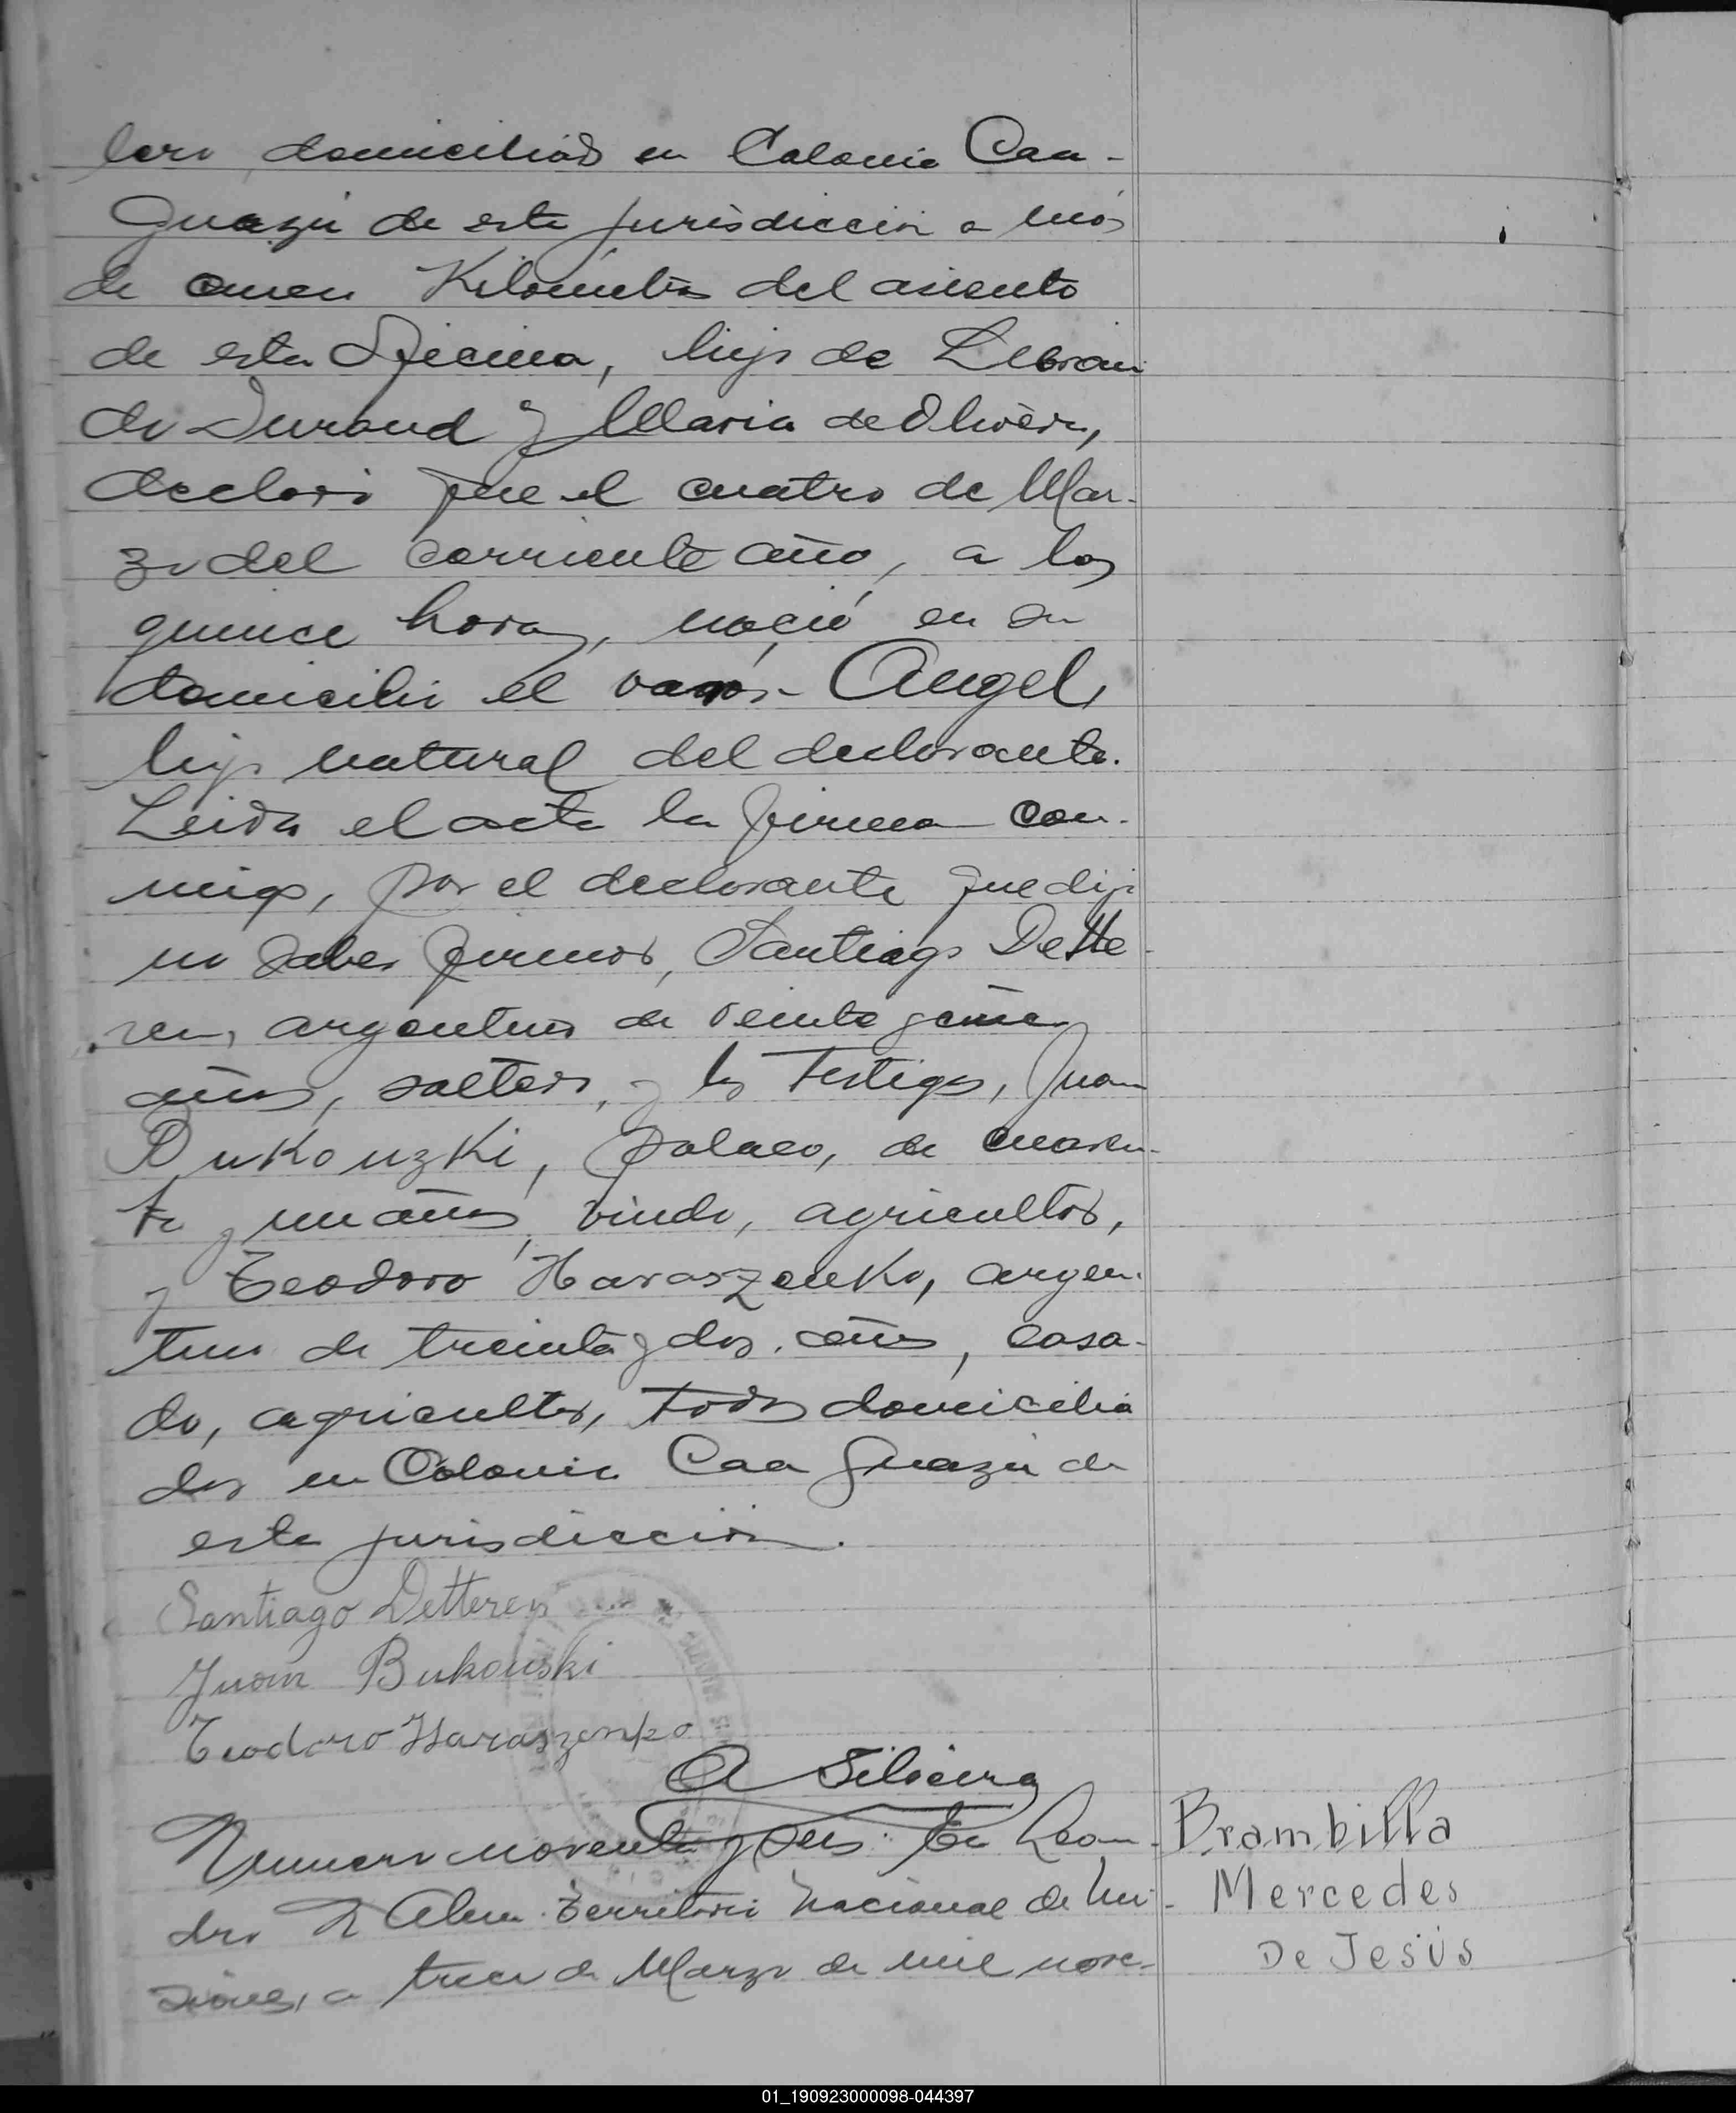 lero, domiciliado en Colonia Caa-
Guazú de esta jurisdicción a más
de cinco Kilómetros del asiento
de esta Oficina, hijo de Libran
do Durand y Maria de Olivera,
declaró que el cuatro de Mar-
zo del corriente año, a las
quince horas, nació en su
domicilio el varón - Angel,
hijo natural del declarante.
Leida el acta la firma con-
migo, por el declarante que dijo
no saber firmar, Santiago Dette-
ren, argentino de veinte y cinco
años, soltero, y los testigos, Juan
Bukouzki, polaco, de cuaren-
ta y un años, viudo, agricultor,
y Teodoro Haraszenko, argen-
tino de treinta y dos años, casa-
do, agricultor, todos domicilia
dos en Colonia Caa Guazú de
esta jurisdicción.
Santiago Detteren
Juan Bukouski
Teodoro Haraszenko
A Silveira
Numero noventa y seis: En Lean-
dro N Alem Territorio Nacional de Mi-
siones, a trece de Marzo de mil nove-
Brambilla
Mercedes
De Jesús
01_190923000098-044397